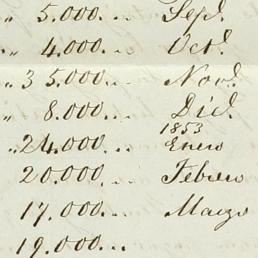 " 5.000... Sepe.
" 4.000... Octe.
" 35.000... Nove.
" 8.000... Dice.
1853
" 24.000... Enero
20.000... Febrero
17.000... Marzo
19.000...